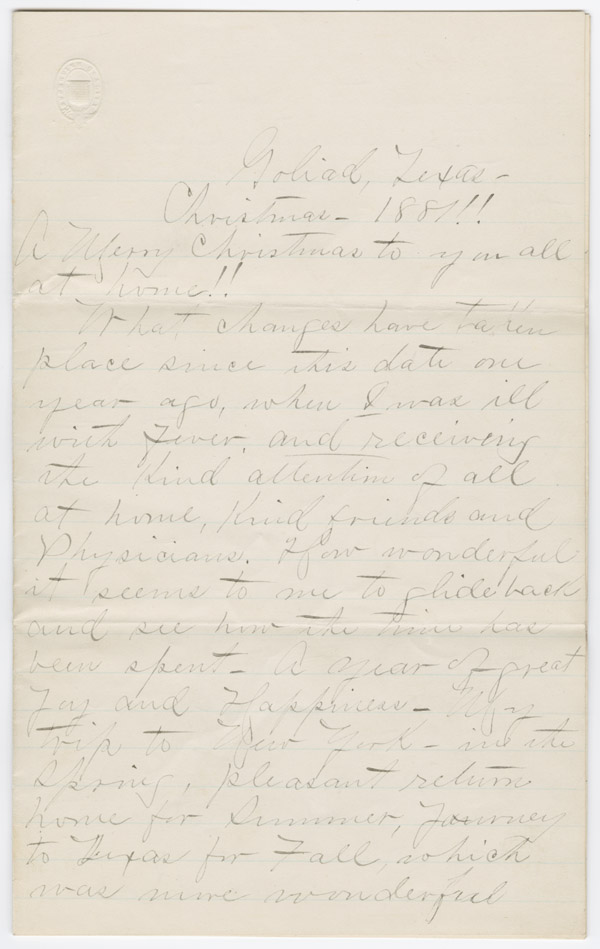 Goliad, Texas-
Christmas- 1881!!
A Merry Christmas to you all
at home!!
What changes have taken
place since this date one
year ago, when I was ill
with Fever, and receiving
the Kind attention of all
at home, Kind friends and
Physicians. How wonderful
it seems to me to glide back
and see how the time has
been spent- A year of great
Joy and Happiness- My
trip to New York- in the
Spring, pleasant return
home for Summer, Journey
to Texas for Fall, which
was more wonderful